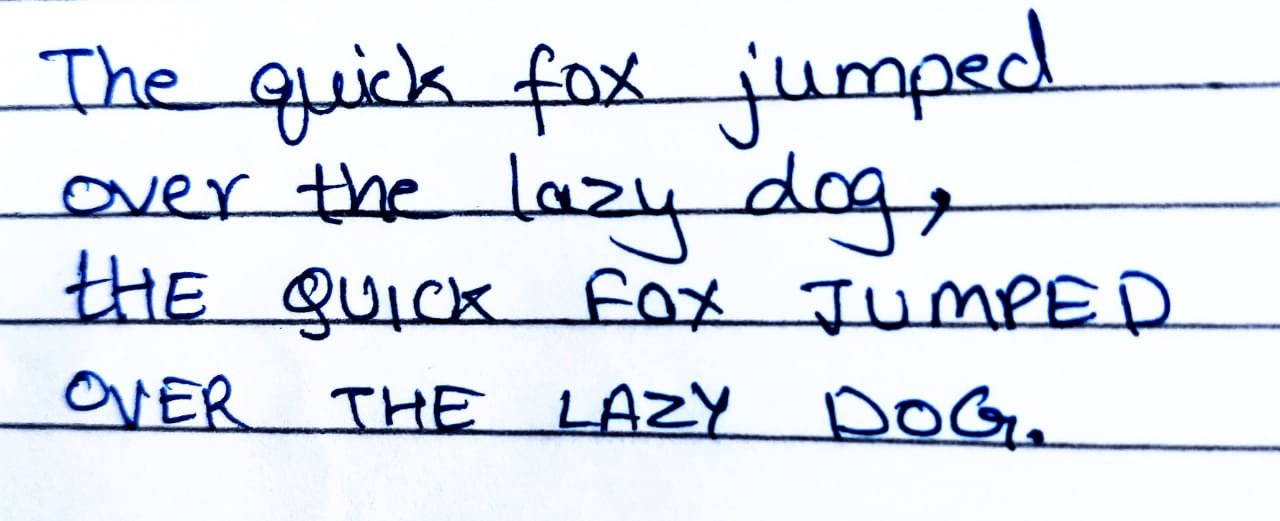 The quick fox jumped
over the lazy dog,
tHE QUICK FOX JUMPED
OVER THE LAZY DOG.